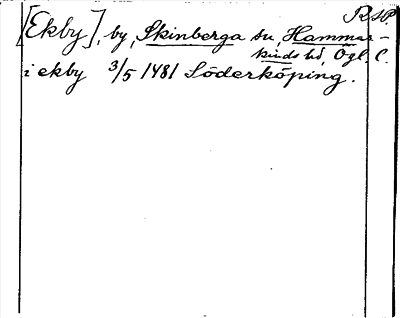 RSP.
[Ekby], by, Skinberga su, Hammar-
kinds hd, Ögl. l.
i ekby 3/5 1481 Söderköping.